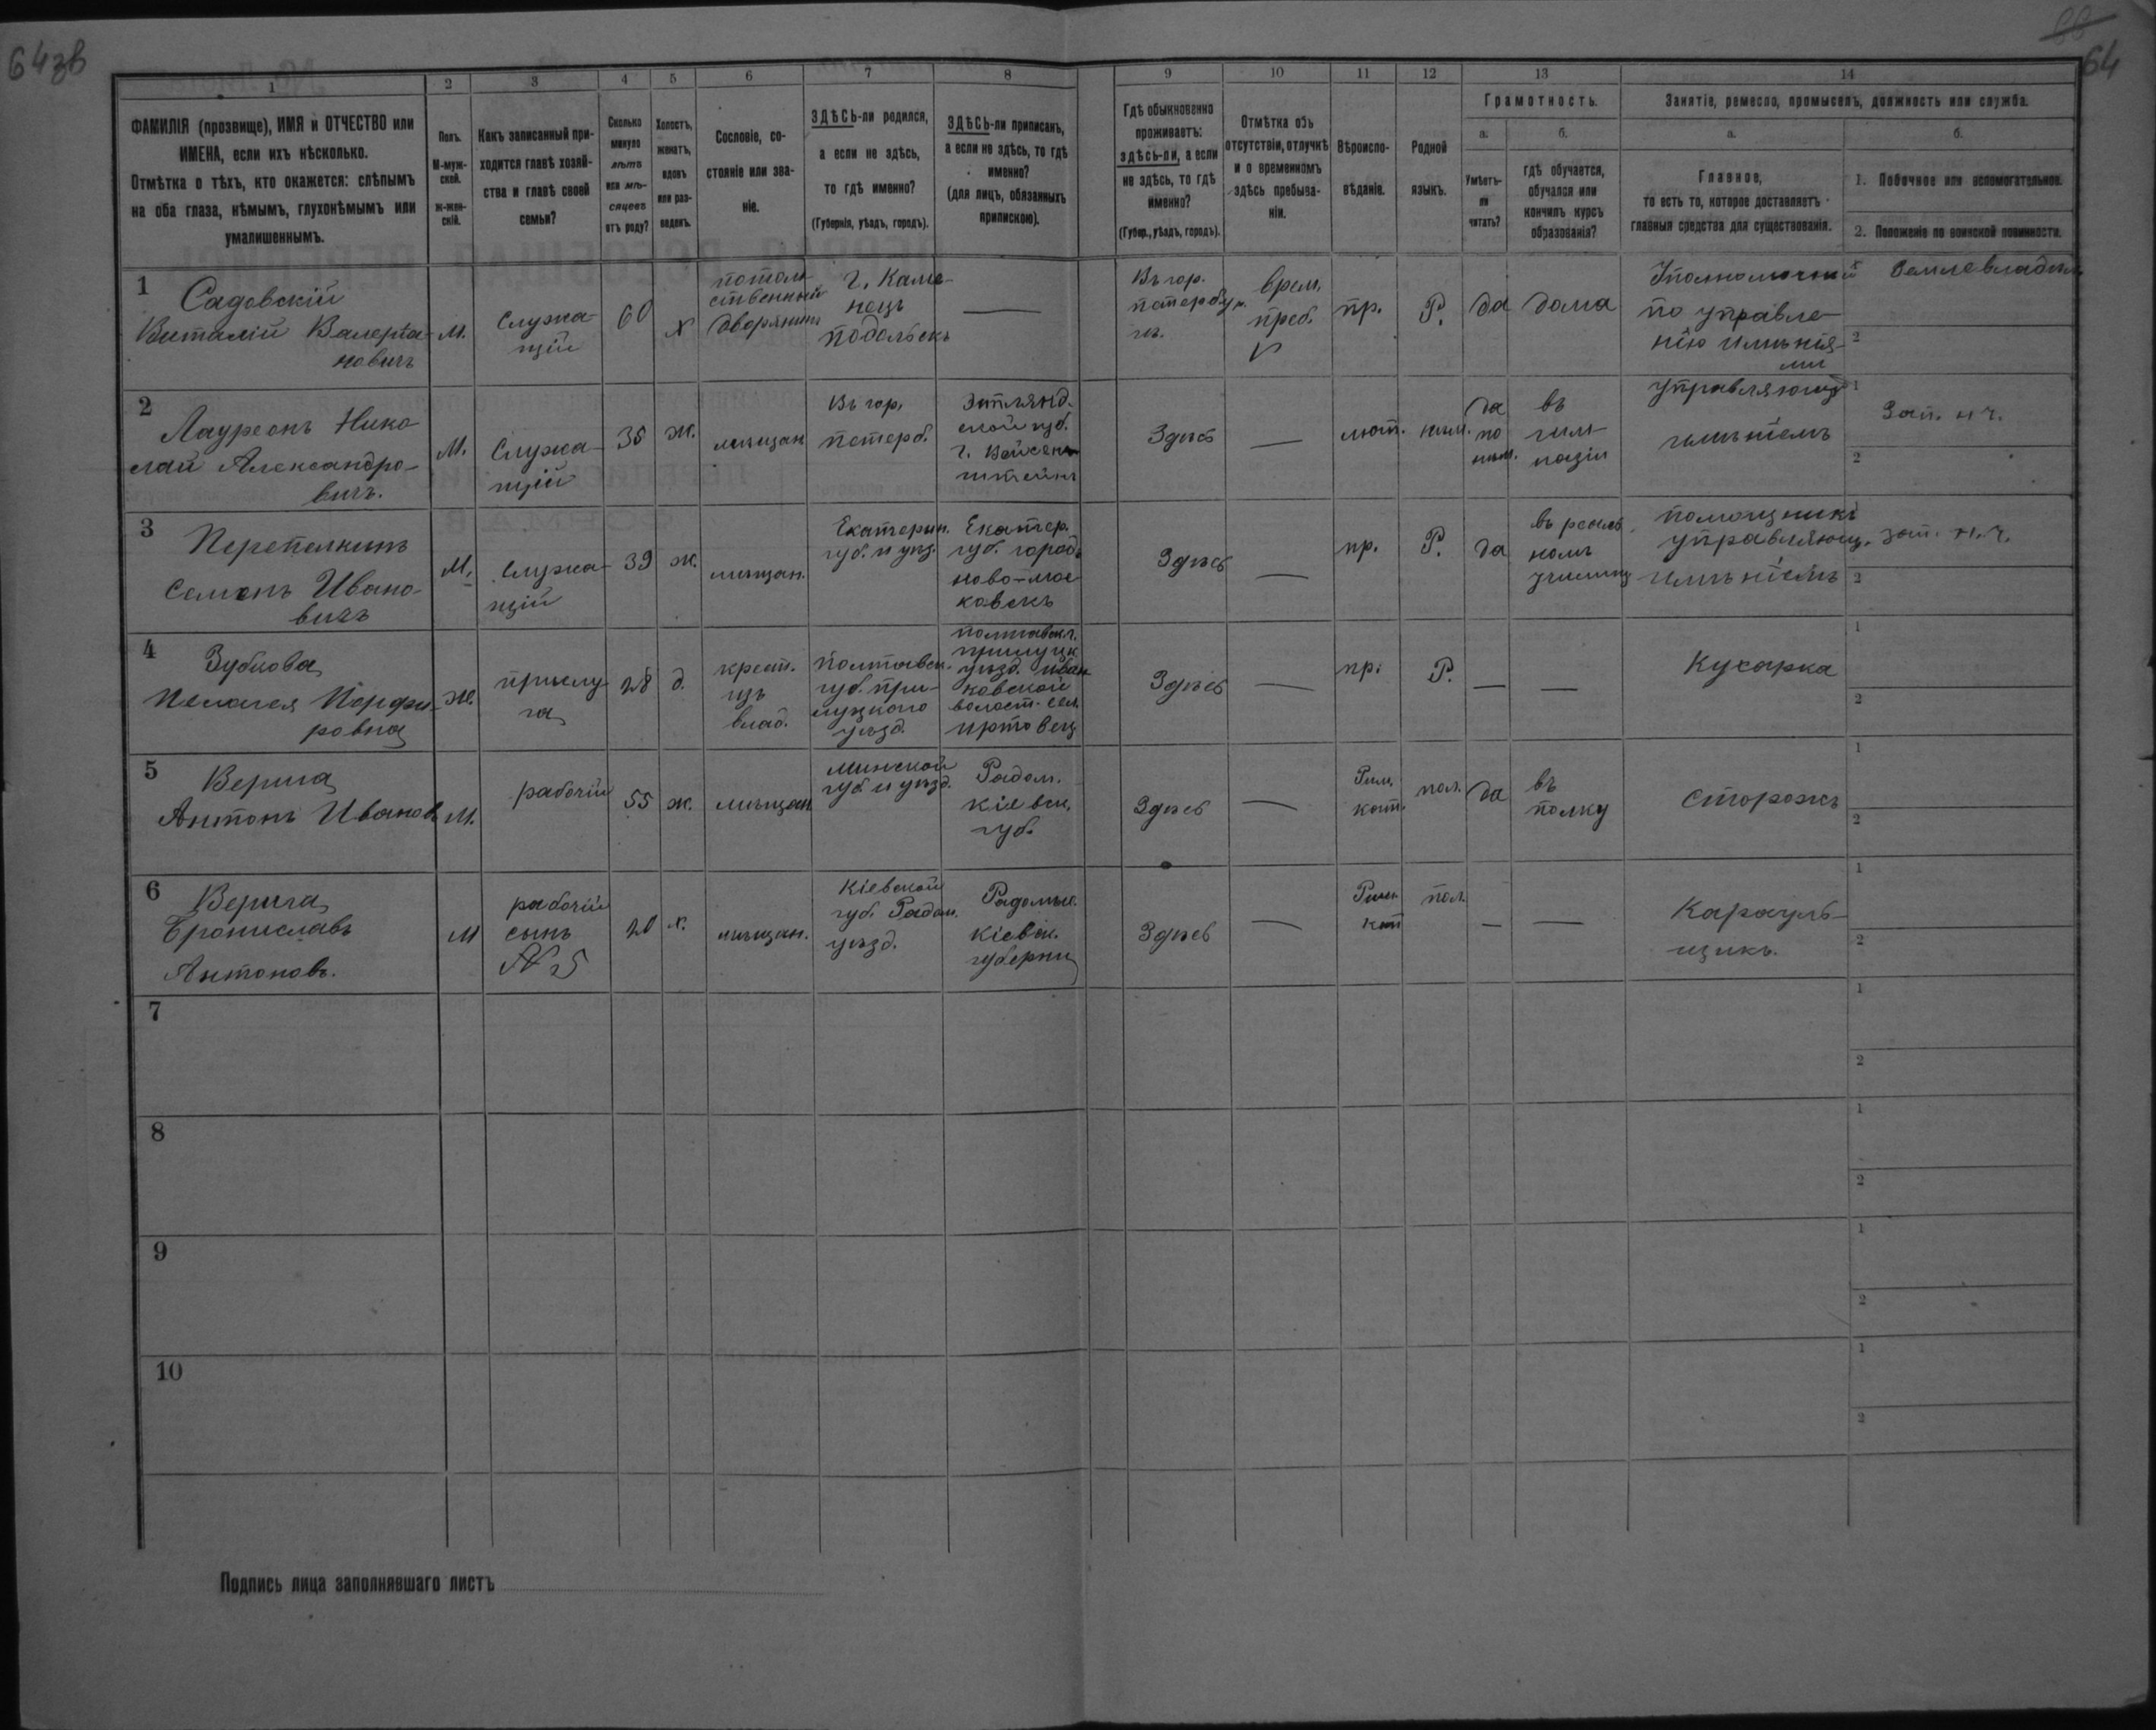 64зв
88
64
1
2
3
4
5
6
7
8
9
10
11
12
13
14
ФАМИЛІЯ (прозвище), ИМЯ и ОТЧЕСТВО или
ИМЕНА, если ихъ нѣсколько.
Отмѣтка о тѣхъ, кто окажется: слѣпымъ
на оба глаза, нѣмымъ, глухонѣмымъ или
умалишеннымъ.
Полъ.
М-муж-
ской.
ж-жен-
скій.
Какъ записанный при-
ходится главѣ хозяй-
ства и главѣ своей
семьи?
Сколько
минуло
лѣтъ
или мѣ-
сяцевъ
отъ роду?
Холостъ,
женатъ,
вдовъ
или раз-
веденъ.
Сословіе, со-
стояніе или зва-
ніе.
ЗДѢСЬ-ли родился,
а если не здѣсь,
то гдѣ именно?
(Губернія, уѣздъ, городъ).
ЗДѢСЬ-ли приписанъ,
а если не здѣсь, то гдѣ
именно?
(для лицъ, обязанныхъ
припискою).
Гдѣ обыкновенно
проживаетъ:
здѣсь-ли, а если
не здѣсь, то гдѣ
именно?
(Губер., уѣздъ, городъ).
Отмѣтка объ
отсутствіи, отлучкѣ
и о временномъ
здѣсь пребыва-
ніи.
Вѣроиспо-
вѣданіе.
Родной
языкъ.
Грамотность.
а.
б.
Умѣетъ-
ли
читать?
гдѣ обучается,
обучался или
кончилъ курсъ
образованія?
Занятіе, ремесло, промыселъ, должность или служба.
а.
б.
Главное,
то есть то, которое доставляетъ
главныя средства для существованія.
1. Побочное или вспомогательное.
2. Положеніе по воинской повинности.
1
Садовскій
Виталій Валеріа-
новичъ
М.
Служа-
щій
60
Х
потом-
ственный
дворянинъ
г. Каме-
нецъ
Подольскъ
—
Въ гор.
Петербур
гѣ.
врем.
преб.
V
пр.
Р.
да
дома
Уполномочный
по управле-
нію имѣнія-
ми
1
Землевладѣл.
2
2
Лауреонъ Нико
лай Александро-
вичъ.
М.
Служа-
щій
35
Ж.
мѣщан
Въ гор.
Петерб.
Эстлянд-
ской губ.
г. Вейсен-
штейнъ
Здѣсь
—
лют.
ним.
да
по
ним.
въ
гим-
назіи
Управляющ
имѣніемъ
1
Зап. н ч.
2
3
Перепелкинъ
Семенъ Ивано-
вичъ
М.
служа-
щій
39
ж.
мѣщан.
Екатерин.
губ. и уѣз.
Екатер.
губ. город.
Ново-мос-
ковскъ
Здѣсь
—
пр.
Р.
да
въ реаль
номъ
училищ
помощникъ
управляющ.
имѣніемъ
1
зап. н. ч.
2
4
Зубкова
Пелагея Порфи-
ровна
Ж.
прислу
га
28
д.
крест.
изъ
влад.
Полтавск.
губ. при-
луцкого
уѣзд.
полтавск.
прилуцк
уѣзд. Иван
ковской
волост. сел.
Здѣсь
—
пр.
Р.
—
—
Кухарка
1
2
5
Верига
Антонъ Ивановъ
М.
рабочій
55
ж.
мѣщан
Минской
губ. и уѣзд.
Радом.
Кіевск.
губ.
Здѣсь
—
Рим.
кат.
пол.
да
въ
полку
Сторожъ
1
2
6
Верига
Брониславъ
Антоновъ.
М
рабочій
сынъ
№ 5
20
х.
мѣщан.
Кіевской
губ. Радом.
уѣзд.
Радомыс.
Кіевск.
губерни
Здѣсь
—
Рим.
кат
пол.
—
—
Карауль-
щикъ.
1
2
7
1
2
8
1
2
9
1
2
10
1
2
Подпись лица заполнявшаго листъ